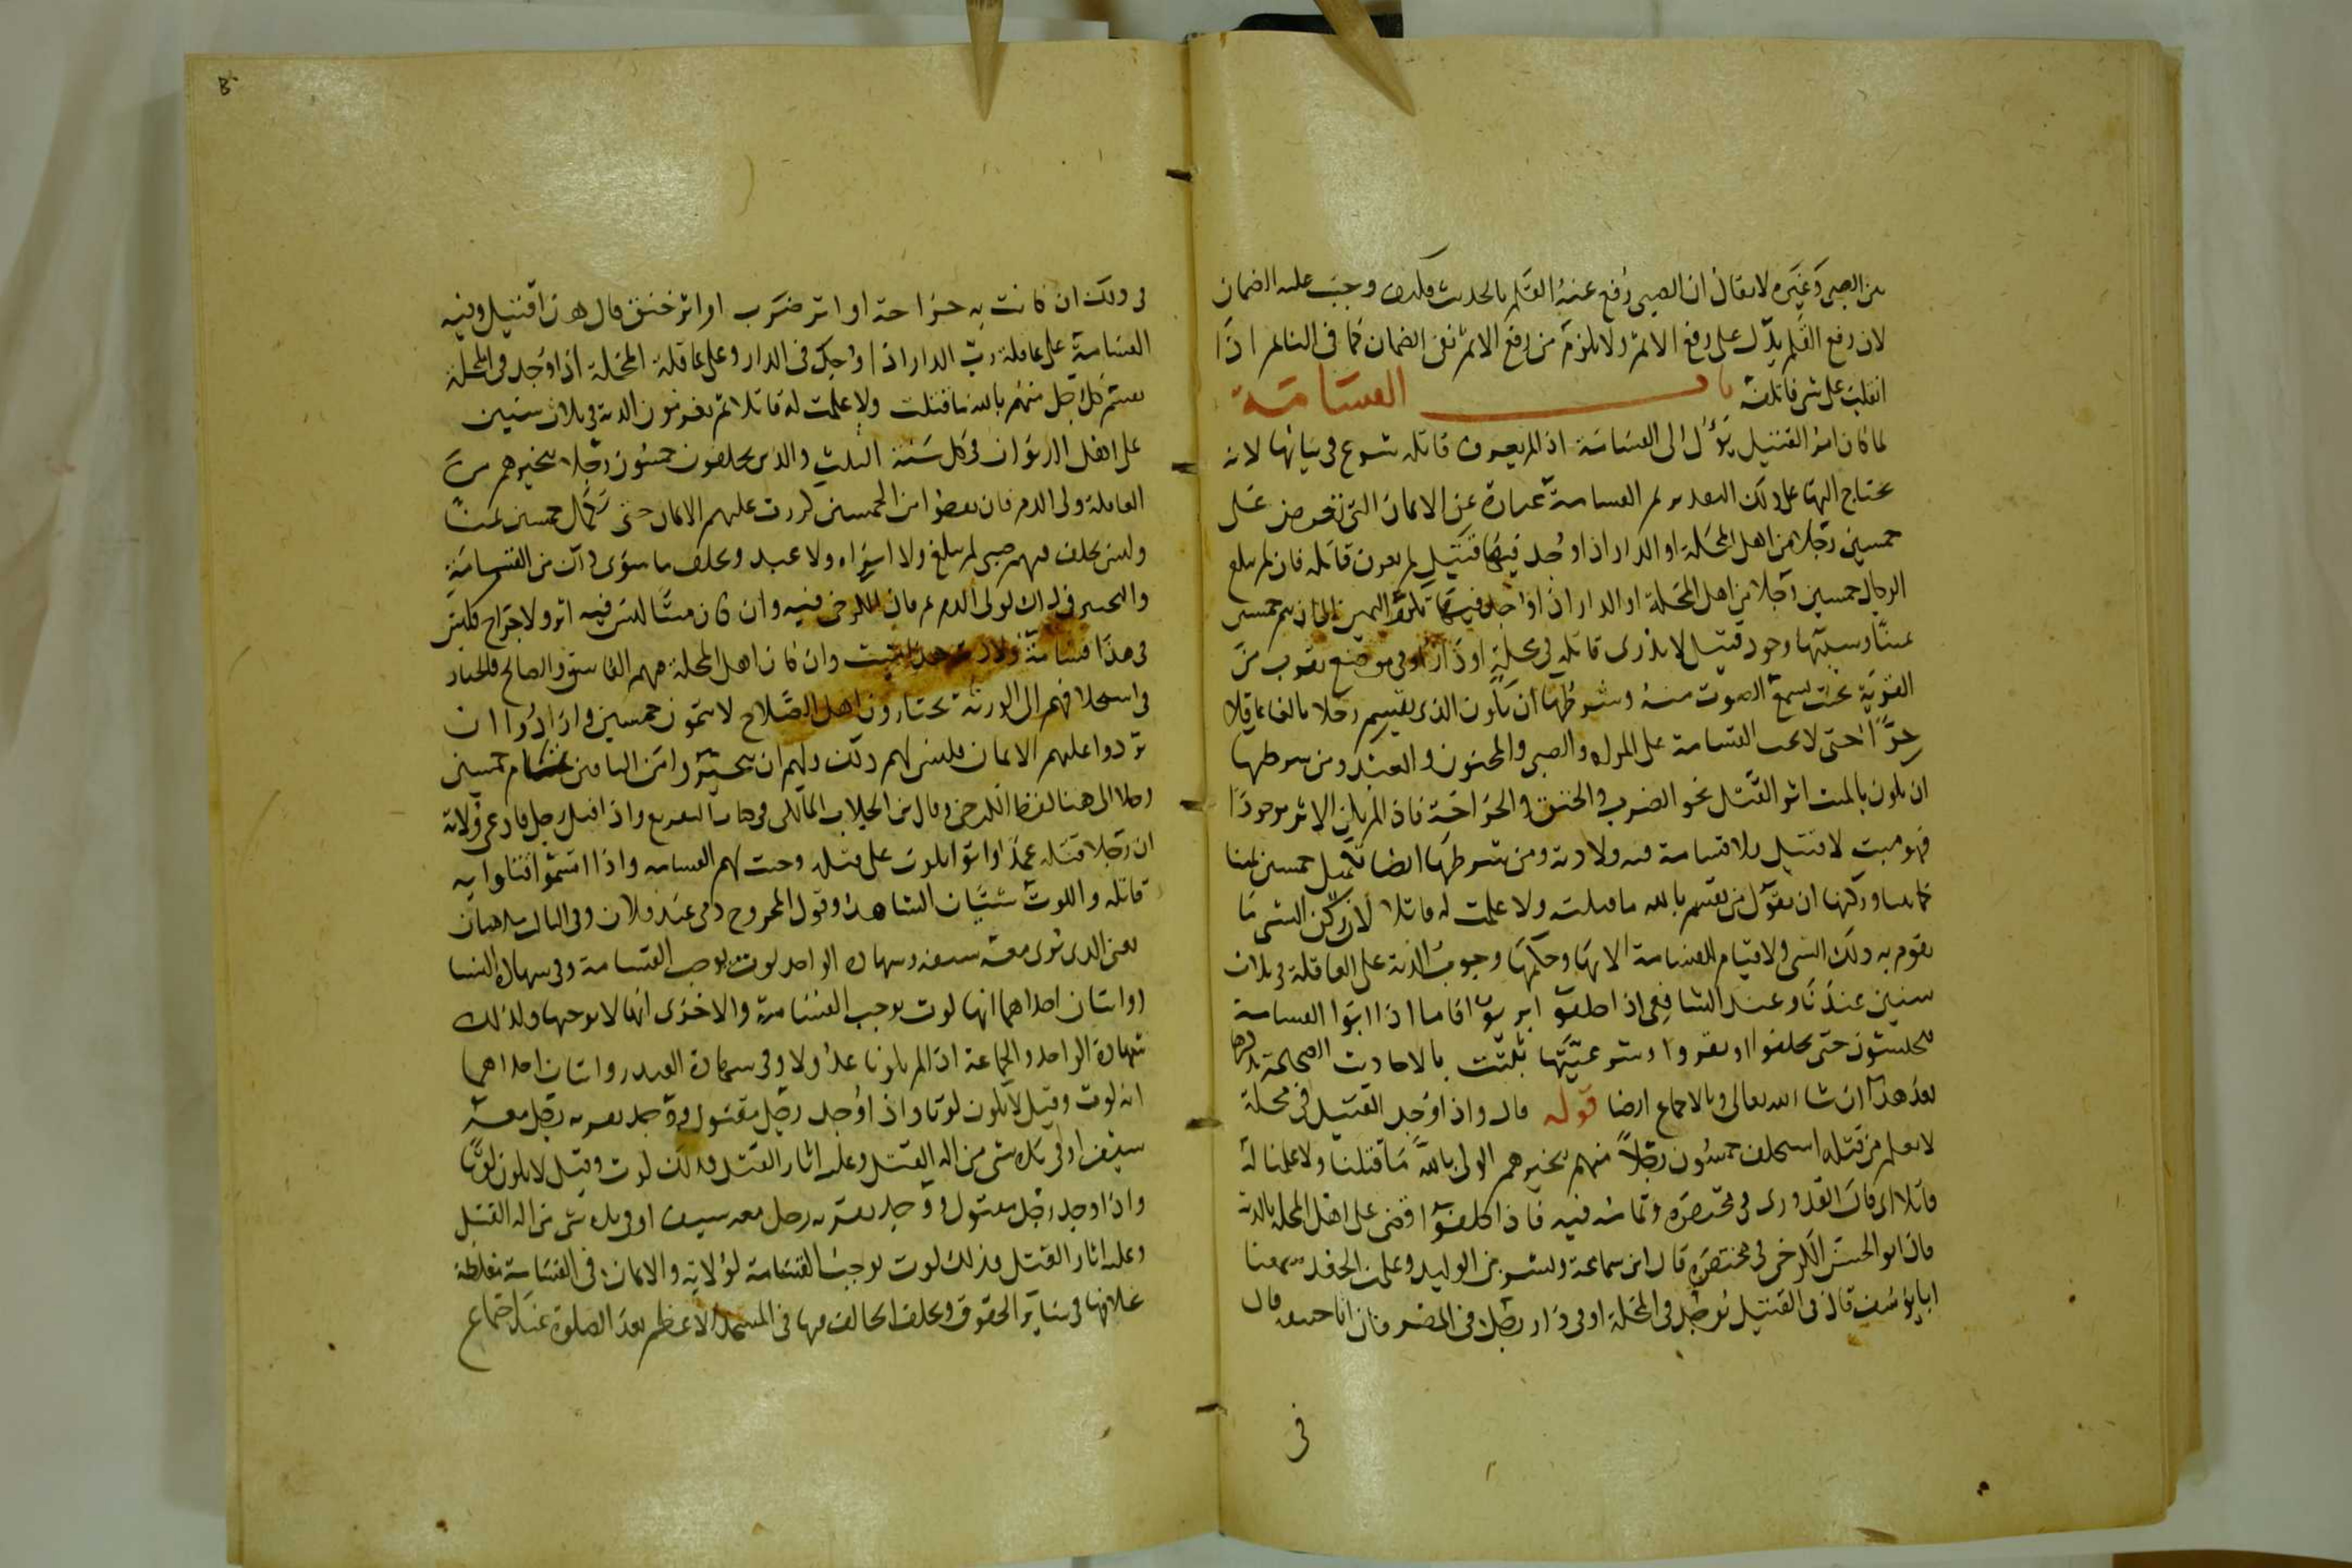 بين الصبي وغيره لا يقال ان الصبي رفع عنه القلم بالحديث فكيف وجب عليه الضمان
لان رفع القلم يدل على رفع الاثم ولا يلزم من رفع الاثم نفي الضمان كما في النائم اذا
انقلب على شي فاتلفه باب القسامة
لما كان امر القتيل يؤل الى القسامة اذا لم يعرف قاتله شرع في بيانها لانه
يحتاج اليها على ذلك التقدير ثم القسامة عبارة عن الايمان التي تعرض على
خمسين رجلا من اهل المحلة او الدار اذا وجد فيها قتيل لم يعرف قاتله فان لم يبلغ
الرجال خمسين رجلا من اهل المحلة او الدار اذا وجد فيها تكرر اليمين الى ان يتم خمسين
يمينا وسببها وجود قتيل لا يدرى قاتله في محلة او دار او في موضع يقرب من
القرية بحيث يسمع الصوت منه وشرطها ان يكون الذي يقسم رجلا بالغا عاقلا
حرا حتى لا تجب القسامة على المراة والصبي والمجنون والعبد ومن شرطها
ان يكون بالميت اثر القتل نحو الضرب والخنق والجراحة فاذا لم يكن الاثر موجودا
فهو ميت لا قتيل فلا قسامة فيه ولا دية ومن شرطها ايضا تكميل خمسين يمينا
كما بينا وركنها ان يقول من يقسم بالله ما قتلت ولا علمت له قاتلا لان ركن الشي ما
يقوم به ذلك الشي ولا قيام للقسامة الا بها وحكمها وجوب الدية على العاقلة في ثلاث
سنين عندنا وعند الشافعي اذا حلفوا بريوا فاما اذا ابوا القسامة
يحبسون حتى يحلفوا او يقروا وشرعيتها ثبتت بالاحاديث الصحيحة نذكرها
بعد هذا ان شا الله تعالى وبالاجماع ايضا قوله قال واذا وجد القتيل في محلة
لا يعلم من قتله استحلف خمسون رجلا منهم يتخيرهم الولي بالله ما قتلنا ولا علمنا له
قاتلا اي قال القدوري في مختصره وتمامه فيه فاذا حلفوا قضى على اهل المحلة بالدية
قال ابو الحسن الكرخي في مختصره قال ابن سماعة وبشر بن الوليد وعلي بن الجعد سمعنا
ابا يوسف قال في القتيل يوجد في المحلة او في دار رجل في المصر فان ابا حنيفة قال
في
في ذلك ان كانت به جراحة او اثر ضرب او اثر خنق قال هذا قتيل وفيه
القسامة على عاقلة رب الدار اذا وجد في الدار وعلى عاقلة المحلة اذا وجد في المحلة
يقسم كل رجل منهم بالله ما قتلت ولا علمت له قاتلا ثم يغرمون الدية في ثلاث سنين
على اهل الديوان في كل سنة الثلث والذين يحلفون خمسون رجلا يتخيرهم من
العاقلة ولي الدم فان نقصوا من الخمسين كررت عليهم الايمان حتى تكمل خمسين يمينا
وليس يحلف فيهم صبي لم يبلغ ولا امراة ولا عبد ويحلف ما سوى ذلك من القسامة
والتخيير في ذلك لولي الدم ثم قال الكرخي فيه وان كان ميتا ليس فيه اثر ولا جراح فليس
في هذا قسامة ولا دية هذا ميت وان كان اهل المحلة فيهم الفاسق والصالح فالخيار
في استحلافهم الى الورثة يختارون اهل الصلاح لا يتمون خمسين وارادوا ان
يردوا عليهم الايمان فليس لهم ذلك ولهم ان يتخيروا من الباقين تمام خمسين
رجلا الى هنا لفظ الكرخي وقال ابن الجلاب المالكي في كتاب التفريع واذا قتل رجل فادعى ولاته
ان رجلا قتله عمدا واتوا بلوث على قتله وجبت لهم القسامة واذا اقسموا قتلوا به
قاتله واللوث شيئان الشاهد وقول المجروح دمي عند فلان وفي الثالث
يعني الذي يرى معه سيفه وشهادة الواحد لوث يوجب القسامة وفي شهادة النسا
روايتان احداهما انها لوث يوجب القسامة والاخرى انها لا توجبها ولذلك
شهادة الواحد والجماعة اذا لم يكونوا عدولا وفي شهادة العبد روايتان احداهما
انه لوث وقيل لا يكون لوثا واذا وجد رجل مقتول ووجد بقربه رجل معه
سيف او في يده شي من آلة القتل وعليه اثار القتل فذلك لوث وقيل لا يكون لوثا
واذا وجد رجل مقتول ووجد بقربه رجل معه سيف او في يده شي من آلة القتل
وعليه اثار القتل فذلك لوث يوجب القسامة لولاته والايمان في القسامة مغلظة
خلافها في ساير الحقوق ويحلف الحالف فيها في المسجد الاعظم بعد الصلوة عند اجتماع